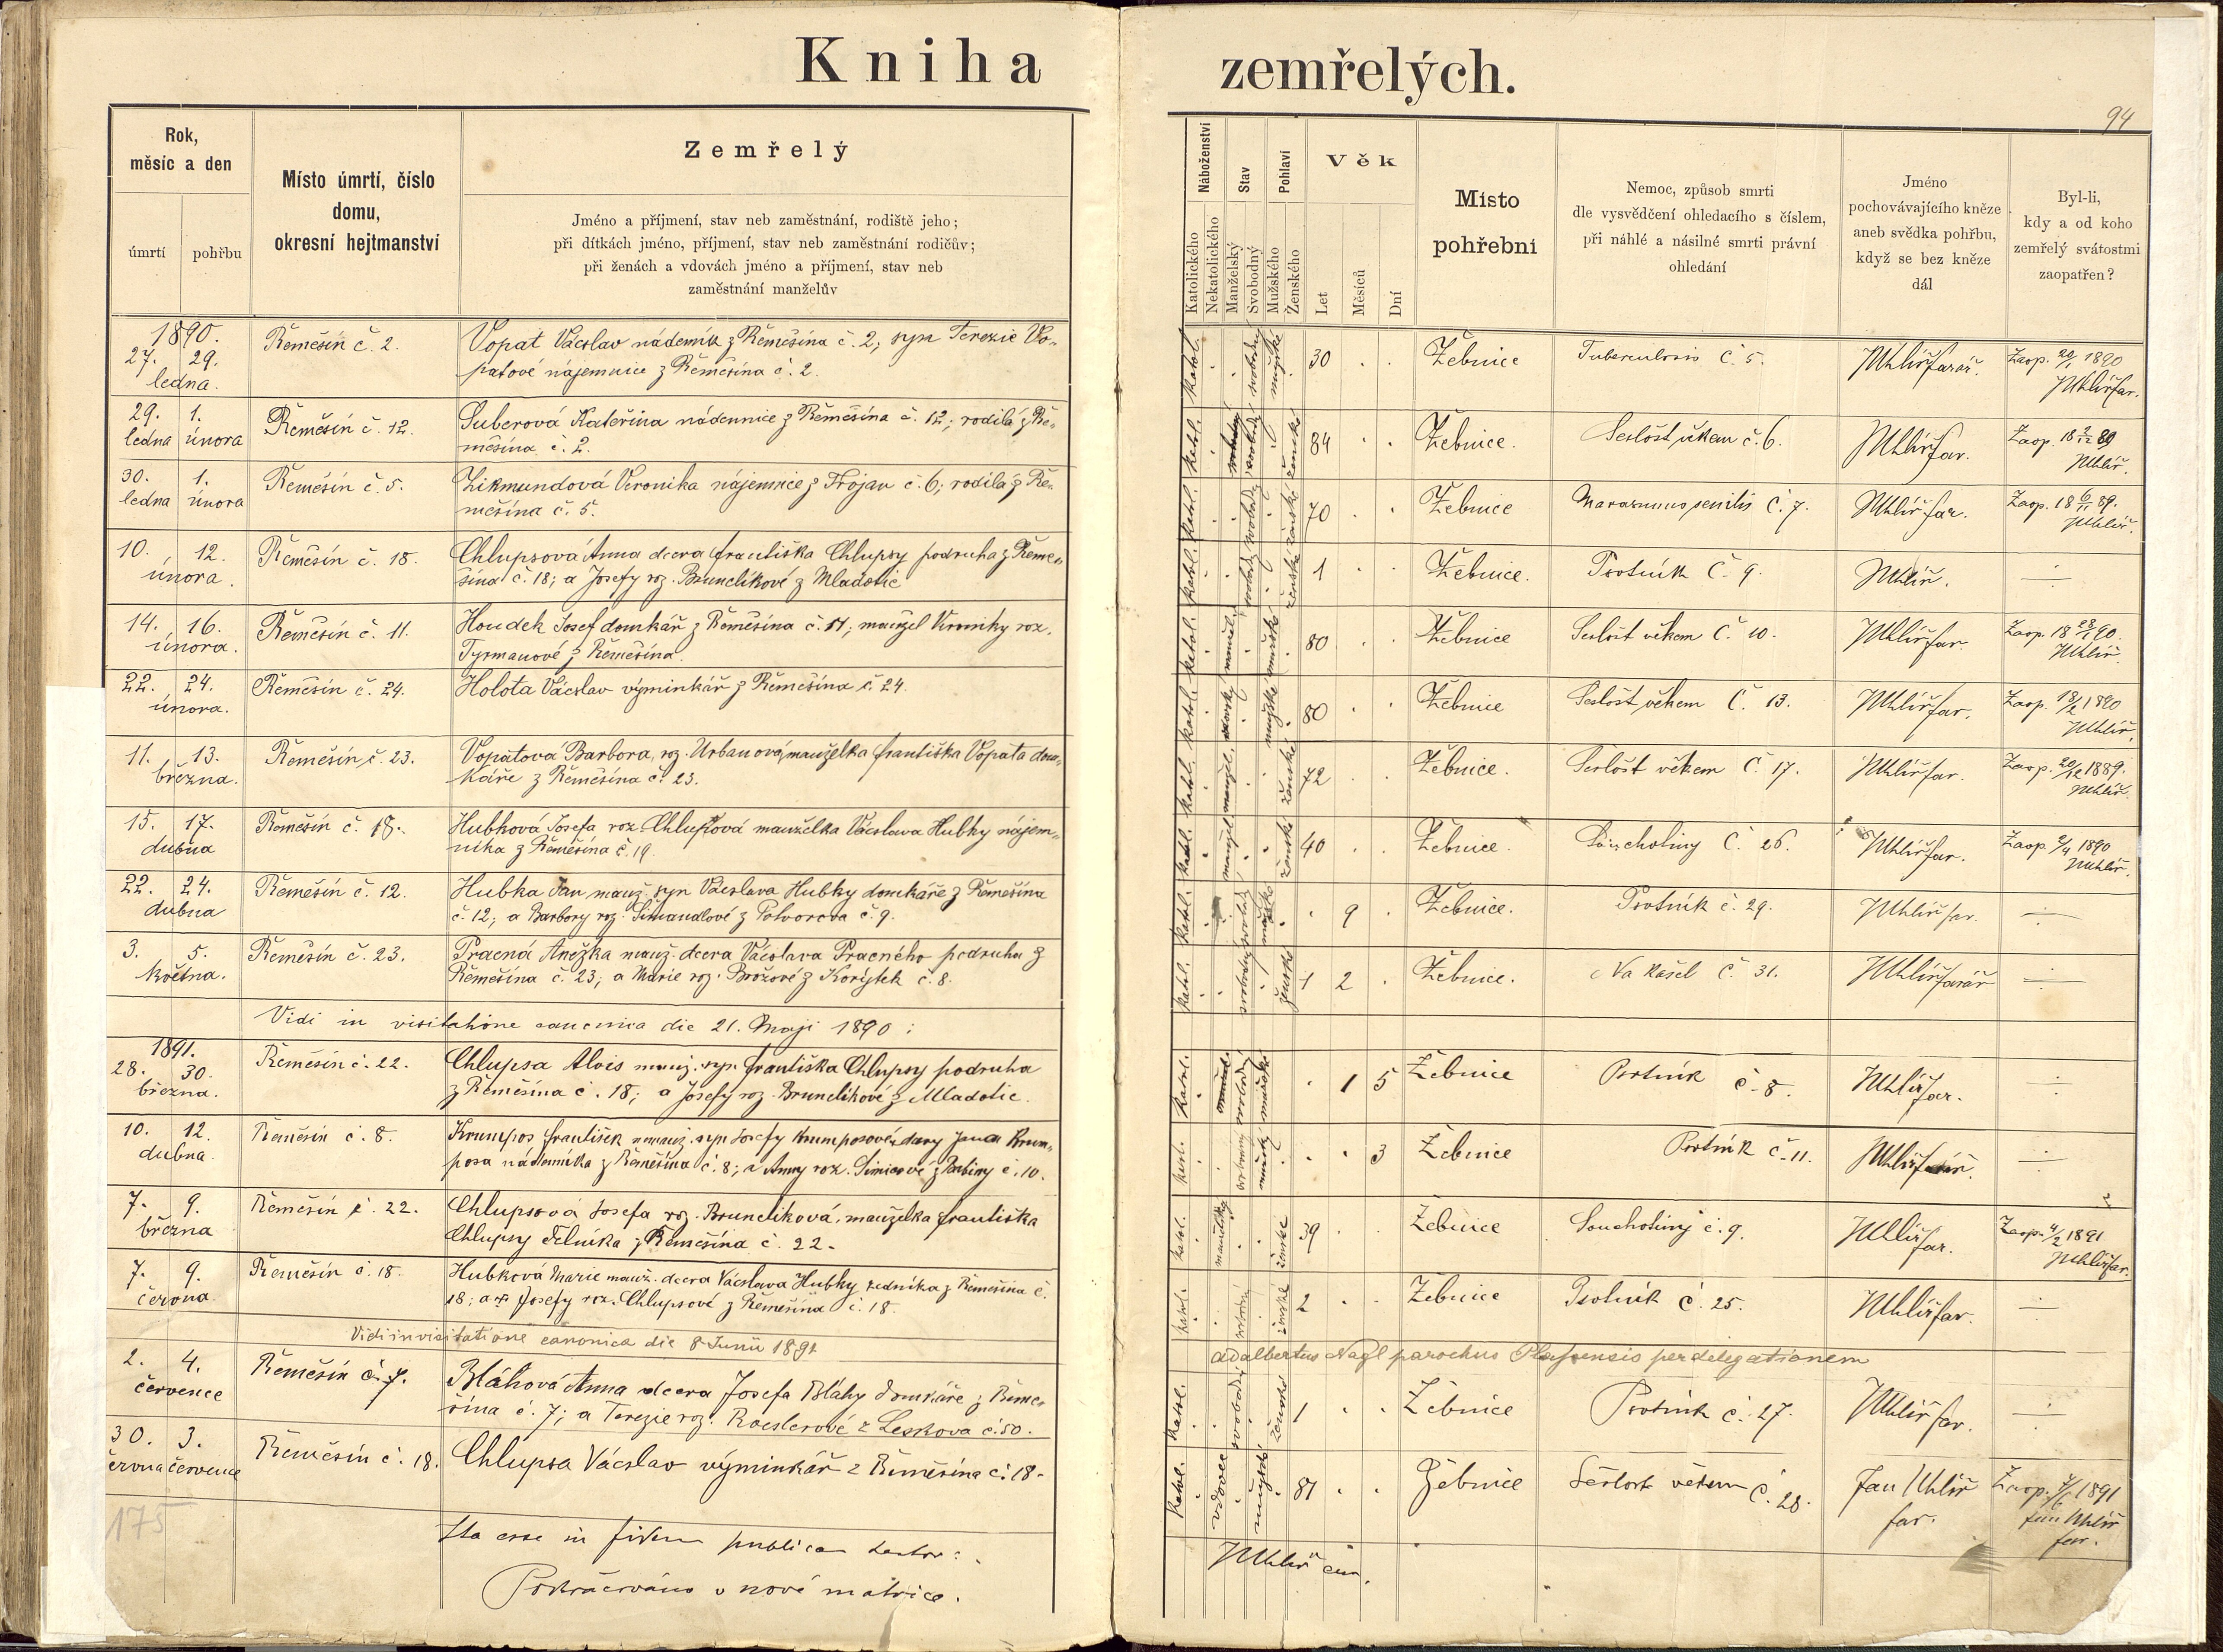 Kniha zemřelých.
94
Rok, měsíc a den
úmrtí
pohřbu
Místo úmrtí, číslo domu, okresní hejtmanství
Zemřelý
Jméno a příjmení, stav neb zaměstnání, rodiště jeho;
při dítkách jméno, příjmení, stav neb zaměstnání rodičův;
při ženách a vdovách jméno a příjmení, stav neb
zaměstnání manželův
Náboženství
Katolického
Nekatolického
Stav
Manželský
Svobodný
Pohlaví
Mužského
Ženského
Věk
Let
Měsíců
Dní
Místo pohřební
Nemoc, způsob smrti
dle vysvědčení ohledacího s číslem,
při náhlé a násilné smrti právní
ohledání
Jméno
pochovávajícího kněze
aneb svědka pohřbu,
když se bez kněze
dál
Byl-li,
kdy a od koho
zemřelý svátostmi
zaopatřen?
1890.
27. 29. ledna. Řemešín č. 2. Vopat Václav nádeník z Řemešína č. 2, syn Terezie Vo-
patové nájemnice z Řemešína č. 2.
katol. svobodný mužské 30 Žebnice Tuberculosis č. 5. JUhlíř farář. Zaop. 20/1 1890 JUhlíř far.
29. ledna 1. února Řemešín č. 12. Suberová Kateřina nádennice z Řemešína č. 12; rodilá z Ře-
mešína č. 2.
katol. ženské 84 Žebnice. Sešlost věkem č. 6. JUhlíř far. Zaop. 18 2/12 89 JUhlíř.
30. ledna 1. února Řemešín č. 5. Zikmundová Veronika nájemnice z Trojan č. 6; rodilá z Ře-
mešína č. 5.
katol. svobodný ženské 70 Žebnice Marasmus senilis č. 7. JUhlíř far. Zaop. 18 6/11 89. JUhlíř.
10. 12. února. Řemešín č. 18. Chlupsová Anna dcera Františka Chlupsy podruha z Řeme-
šína č. 18; a Josefy roz. Brunclíkové z Mladotic
katol. svobodný ženské 1 Žebnice. Psotník č. 9. JUhlíř.
14. 16. února. Řemešín č. 11. Houdek Josef domkář z Řemešína č. 11; manžel Veroniky roz.
Tyrmanové z Řemešína.
katol. manžel. mužské 80 Žebnice Sešlost věkem č. 10. JUhlíř far. Zaop. 18 28/1 90. JUhlíř.
22. 24. února. Řemešín č. 24. Holota Václav výminkář z Řemešína č. 24.
katol. mužské 80 Žebnice Sešlost věkem č. 13. JUhlíř far. Zaop. 1890 JUhlíř.
11. 13. března. Řemešín č. 23. Vopatová Barbora, roz. Urbanová, manželka Františka Vopata dom-
káře z Řemešína č. 23.
katol. manžel. ženské 72 Žebnice. Sešlost věkem č. 17. JUhlíř far. Zaop. 20/12 1889. JUhlíř.
15. 17. dubna Řemešín č. 18. Hubková Josefa roz. Chlupsová manželka Václava Hubky nájem-
níka z Řemešína č. 19.
katol. manžel. ženské 40 Žebnice. Souchotiny č. 26. JUhlíř far. Zaop. 2/4 1890 JUhlíř.
22. 24. dubna Řemešín č. 12. Hubka Jan, manž. syn Václava Hubky domkáře z Řemešína
č. 12; a Barbory roz. Šimandlové z Potvorova č. 9.
katol. svobodný mužské 9 Žebnice. Psotník č. 29. JUhlíř far.
3. 5. května. Řemešín č. 23. Pracná Anežka manž. dcera Václava Pracného podruha z
Řemešína č. 23; a Marie roz. Brožové z Korýtek č. 8.
katol. svobodný ženské 1 2 Žebnice. Na kašel č. 31. JUhlíř farář
Vidi in visitatione canonica die 21. Maji 1890:
1891.
28. 30. března. Řemešín č. 22. Chlupsa Alois manž. syn Františka Chlupsy podruha
z Řemešína č. 18; a Josefy roz. Brunclíkové z Mladotic.
katol. svobodný mužské 1 5 Žebnice Psotník č. 8. JUhlíř far.
10. 12. dubna. Řemešín č. 8. Krumpos František nemanž. syn Josefy Krumposové, dcery Jana Krum-
posa nádeníka z Řemešína č. 8; a Anny roz. č. 10.
katol. svobodný mužský 3 Žebnice Psotník č. 11. JUhlíř farář.
7. 9. března Řemešín č. 22. Chlupsová Josefa roz. Brunclíková, manželka Františka
Chlupsy čelníka z Řemešína č. 22.
katol. manželský ženské 39 Žebnice Souchotiny č. 9. JUhlíř far. Zaop. 4/2 1891 JUhlíř far.
7. 9. června. Řemešín č. 18. Hubková Marie manž. dcera Václava Hubky zedníka z Řemešína č.
18; a Josefy roz. Chlupsové z Řemešína č. 18.
katol. svobodný ženské 2 Žebnice Psotník č. 25. JUhlíř far.
Vidi in visitatione canonica die 8 Junii 1891
Adalbertus Nagl parochus Plassensis per delegationem
2. 4. července Řemešín č. 7. Bláhová Anna dcera Josefa Bláhy domkáře z Řeme-
šína č. 7; a Terezie roz. Roeslerové z Leskova č. 50.
katol. svobodný ženské 1 Žebnice Psotník č. 27. JUhlíř far.
30. června 3. července Řemešín č. 18. Chlupsa Václav výminkář z Řemešína č. 18.
katol. vdovec mužské 81 Žebnice Sešlost věkem č. 28. Jan Uhlíř far. Zaop. 1891 Jan Uhlíř far.
175
Ita esse in fidem publicam testor:
JUhlíř
Pokračováno v nové matrice.